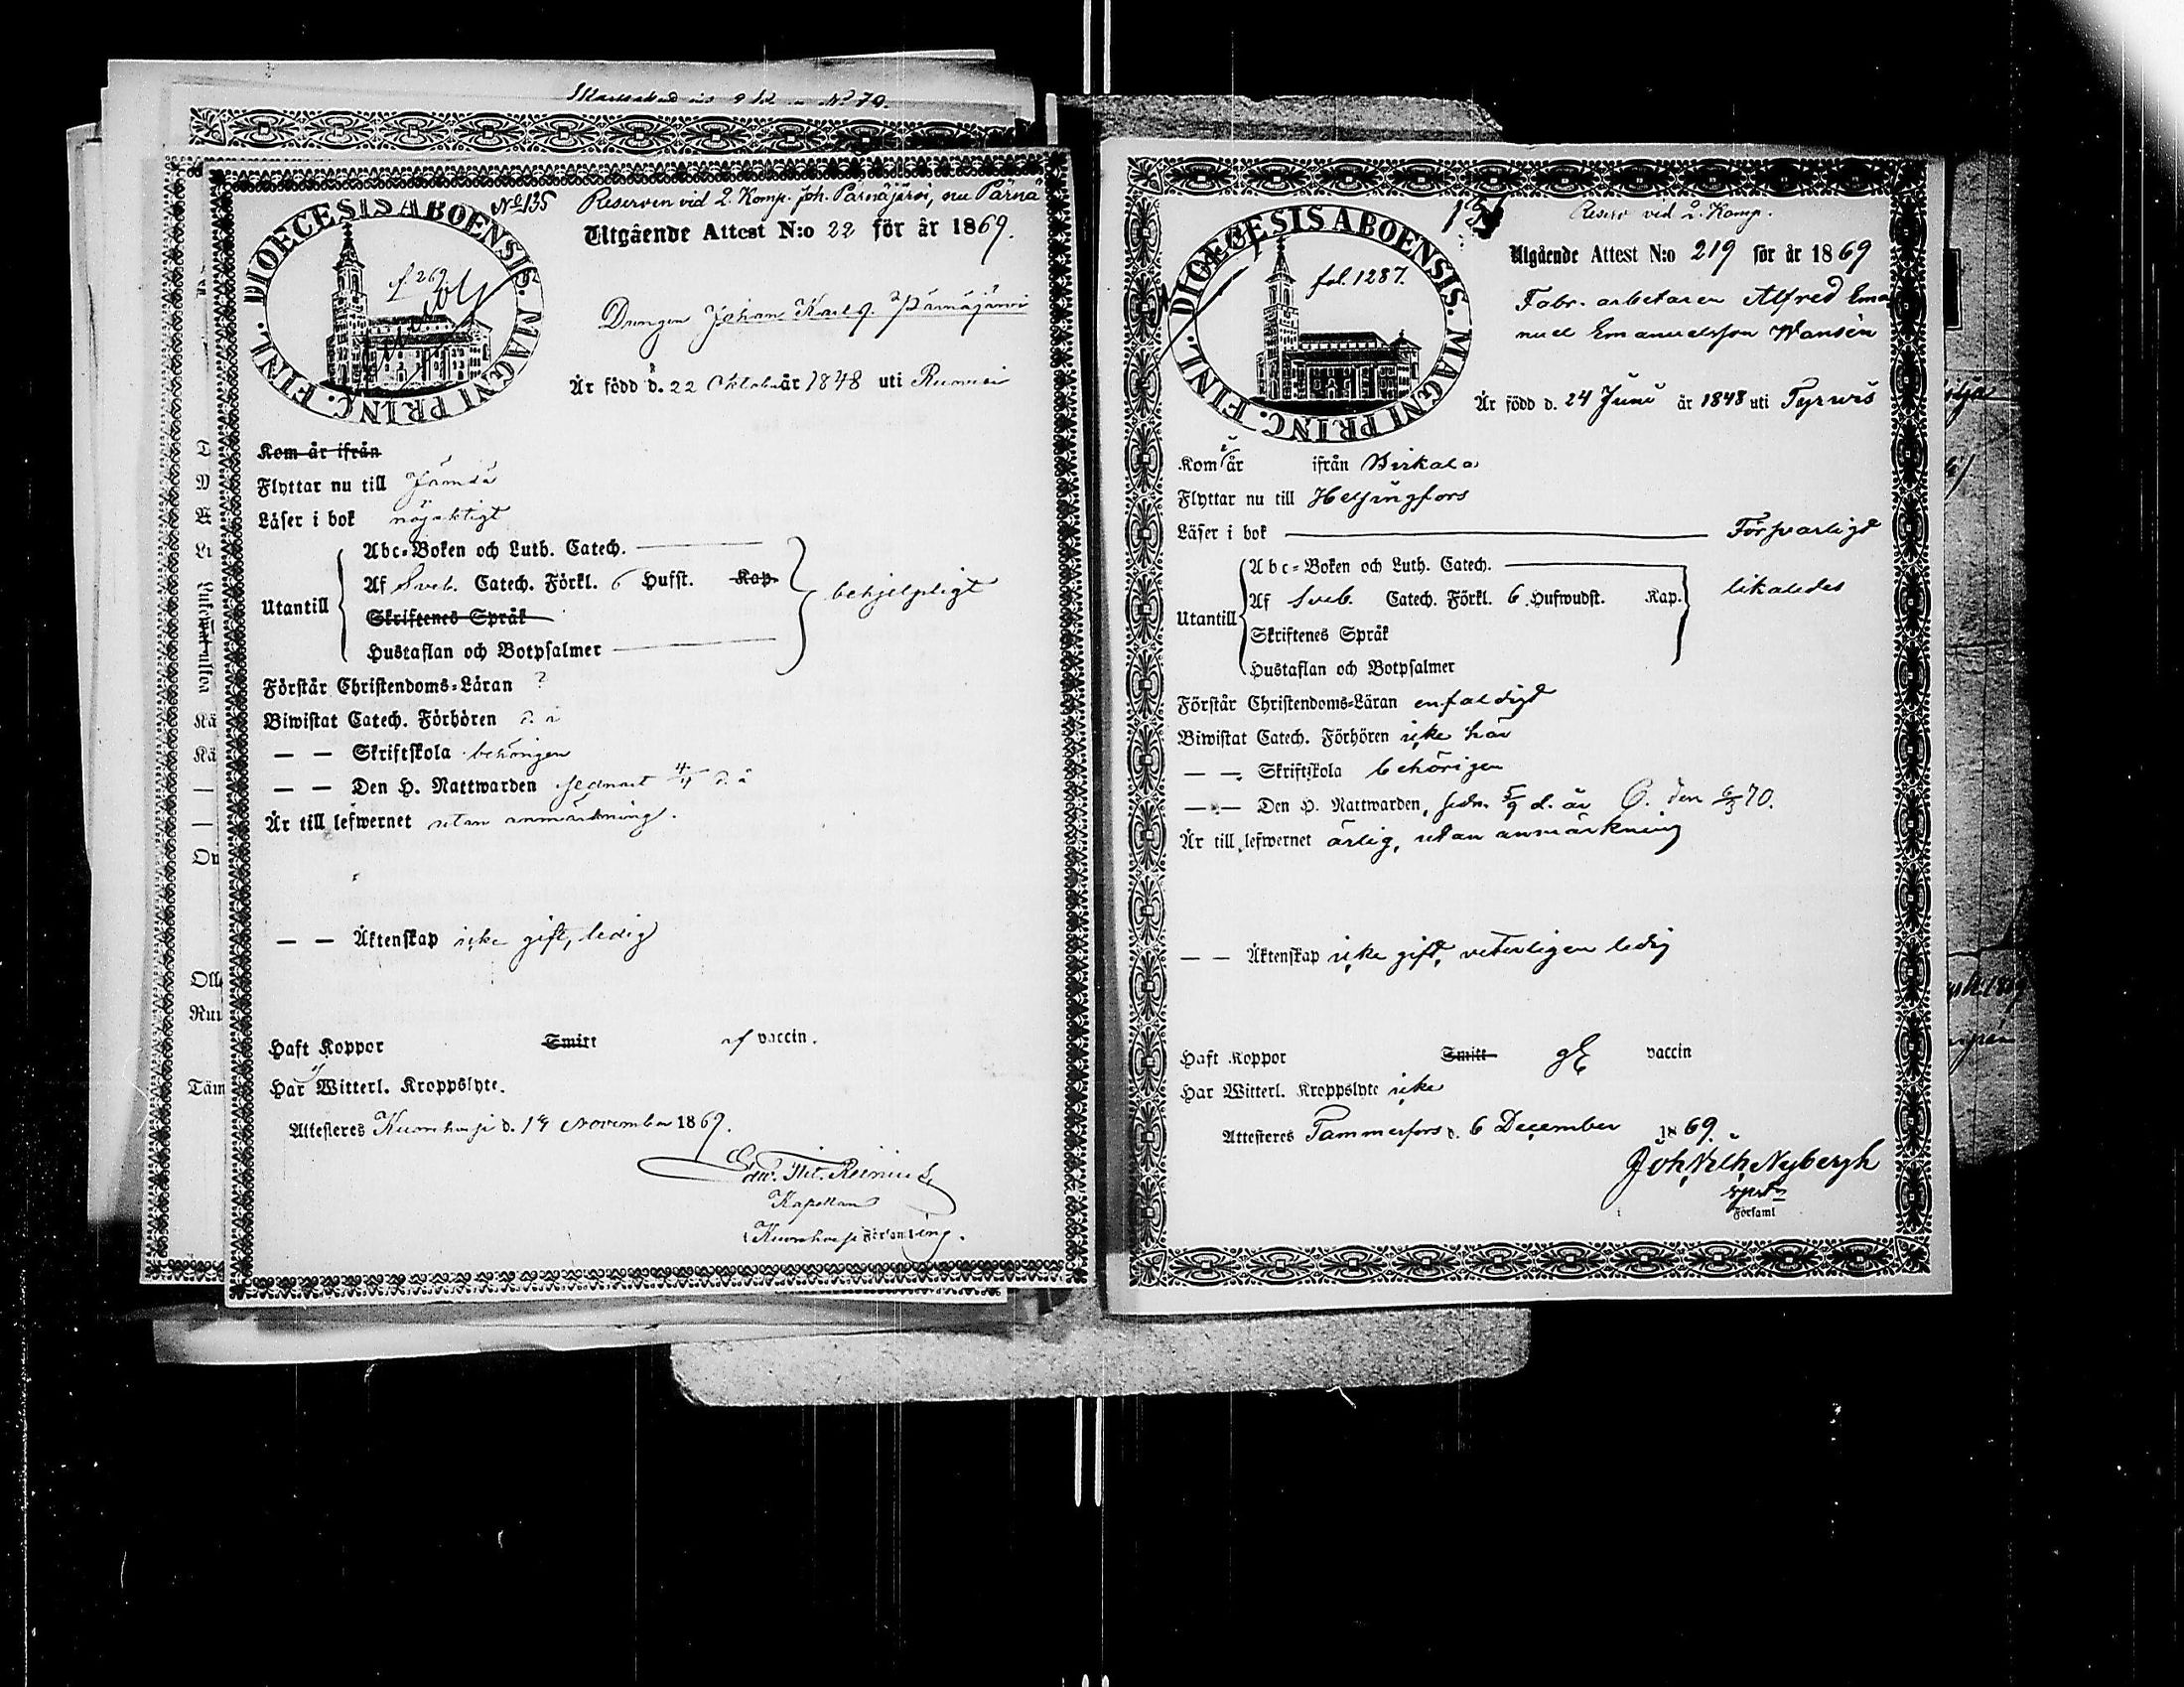 No 135
Reserven vid 2. Komp. Joh. Pärnäjärvi, nu Pärna
DIOECESIS ABOENSIS. MAGNI PRINC. FINL.
f. 269
Utgående Attest N:o 22 för år 1869.
Drengen Johan Karl J. Pärnäjärvi
Är född d. 22 Oktober år 1848 uti Rumni
Kom år ifrån
Flyttar nu till
Läser i bok nöjaktigt
Utantill
Abc-Boken och Luth. Catech.
Af Sveb. Catech. Förkl. 6 Hufst. Kap.
Skriftenes Språk
Hustaflan och Botpsalmer
behjelpligt
Förstår Christendoms-Läran ?
Biwistat Catech. Förhören d. å
— — Skriftskola behörigen
— — Den H. Nattwarden sednast 4/4 d. å
Är till lefwernet utan anmärkning.
— — Äktenskap icke gift, ledig
Haft Koppor Smitt af vaccin.
Har ej Witterl. Kroppslyte.
Attesteres d. 14 November 1869.
Kapellan
Församling.
Reserv vid 2. Komp.
DIOECESIS ABOENSIS. MAGNI PRINC. FINL.
fol. 1287.
Utgående Attest N:o 219 för år 1869
Fabr. arbetaren Alfred Ema
nuel Emanuelsson Wansén
Är född d. 24 Juni år 1848 uti Tyrvis
Kom i år ifrån Birkala
Flyttar nu till Helsingfors
Läser i bok Försvarligt
Utantill
Abc-Boken och Luth. Catech.
Af Sveb. Catech. Förkl. 6 Hufwudst. Kap.
Skriftenes Språk
Hustaflan och Botpsalmer
likaledes
Förstår Christendoms-Läran enfaldigt
Biwistat Catech. Förhören icke här
— — Skriftskola behörigen
— — Den H. Nattwarden, sedn. 5/9 d. år C. den 6/3 70.
Är till lefwernet ärlig, utan anmärkning
— — Äktenskap icke gift, veterligen ledig
Haft Koppor Smitt vaccin
Har Witterl. Kroppslyte icke
Attesteres Tammerfors d. 6 December 1869.
Joh. Vilh. Nybergh
Församl